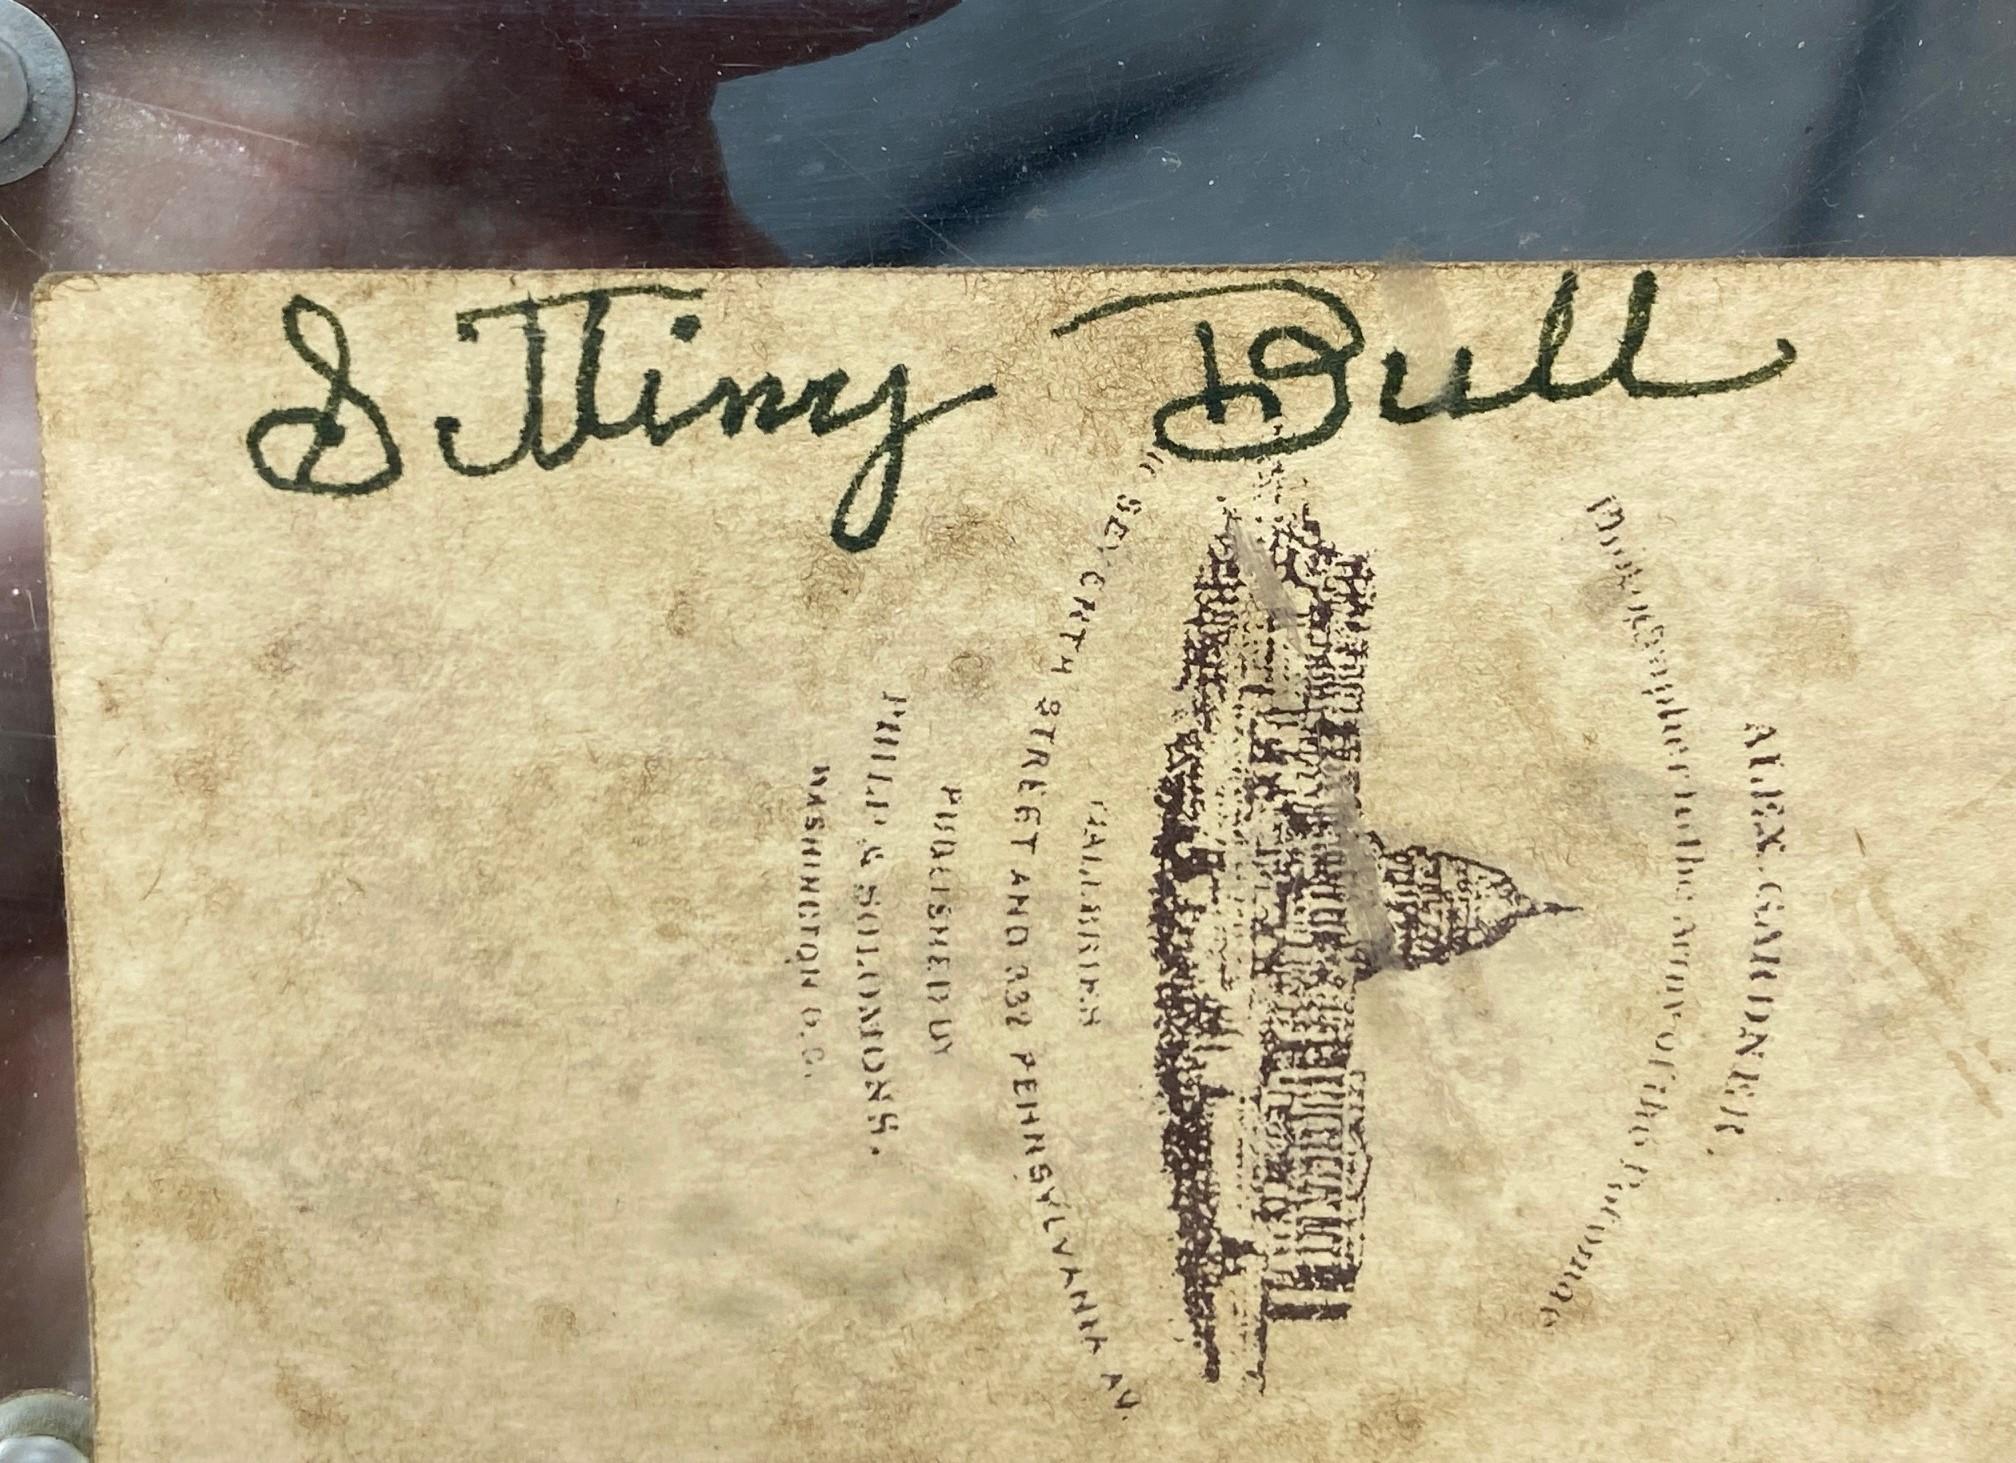 Sitting Bull
ALEX. GARDNER.
Photographer to the Army of the Potomac
GALLERIES
SEVENTH STREET AND 332 PENNSYLVANIA AV.
PUBLISHED BY
PHILLP & SOLOMONS.
WASHINGTON D.C.